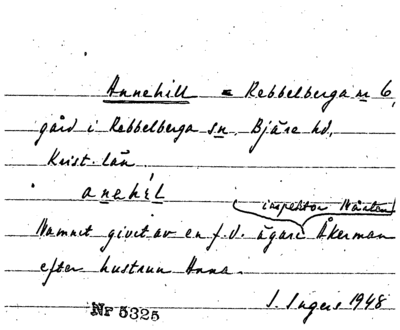 Annehill = Rebbelberga nr 6,
gård i Rebbelberga sn, Bjäre hd,
Krist. län
anehil
inspektor
Namnet givet av en f.d. ägare Åkerman
efter hustrun Anna.
I. Ingers 1948
Nr 5325